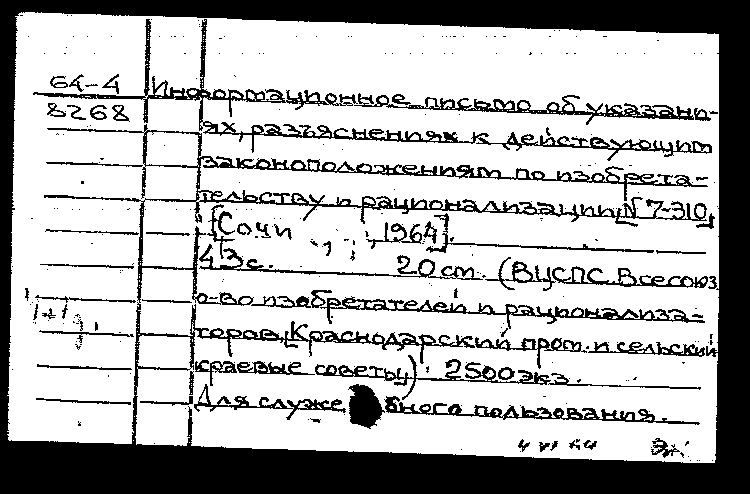 64-4 Информационное письмо об указани-
8268 ях, разъяснениях к действующим
законоположениям по изобрета-
тельству и рационализации, № 7-310,
[Сочи, 1964].
43 с. 20 cm. (ВЦСПС. Всесоюз.
о-во изобретателей и рационализа-
торов, Краснодарский пром. и сельский
краевые советы). 2500 экз.
Для служебного пользования.
4 VI 64